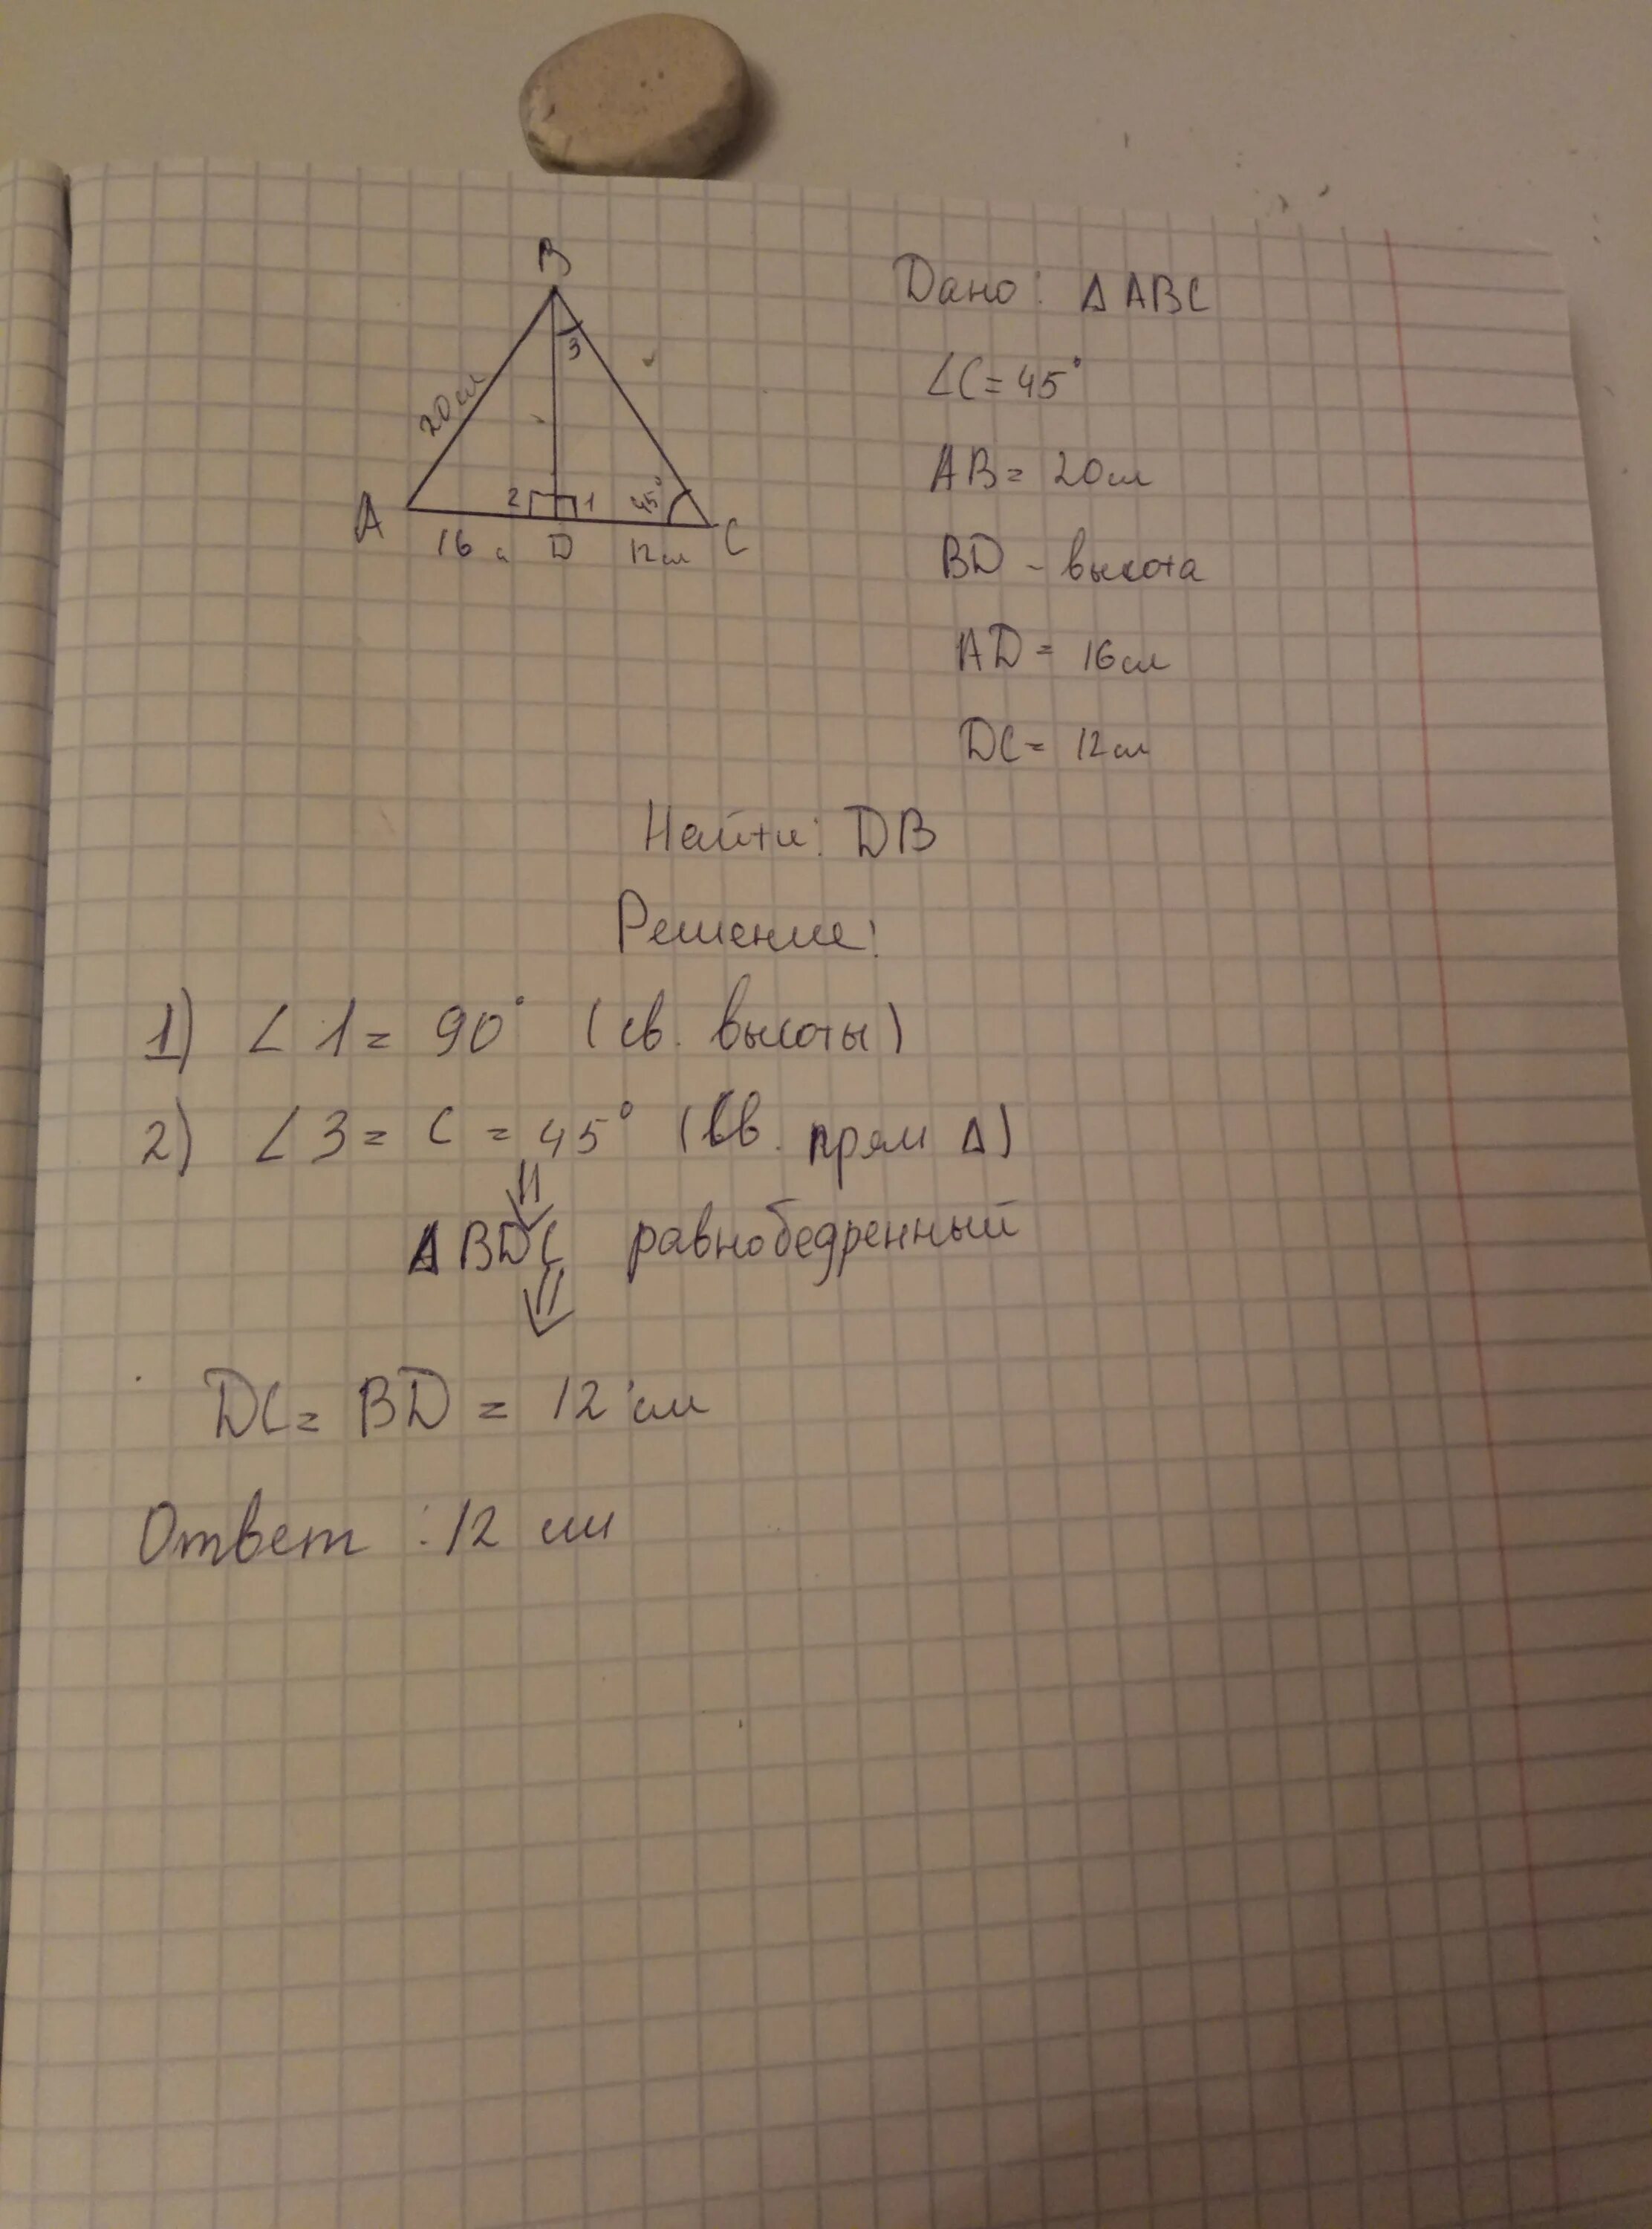 B
3
20 см
A
2
1
45°
C
16
D
12 см
Дано: Δ ABC
∠C = 45°
AB = 20 см
BD - высота
AD = 16 см
DC = 12 см
Найти: DB
Решение:
1) ∠1 = 90° (св. высоты)
2) ∠3 = C = 45° (Св. прям Δ)
Δ BDC равнобедренный
DC = BD = 12 см
Ответ : 12 см